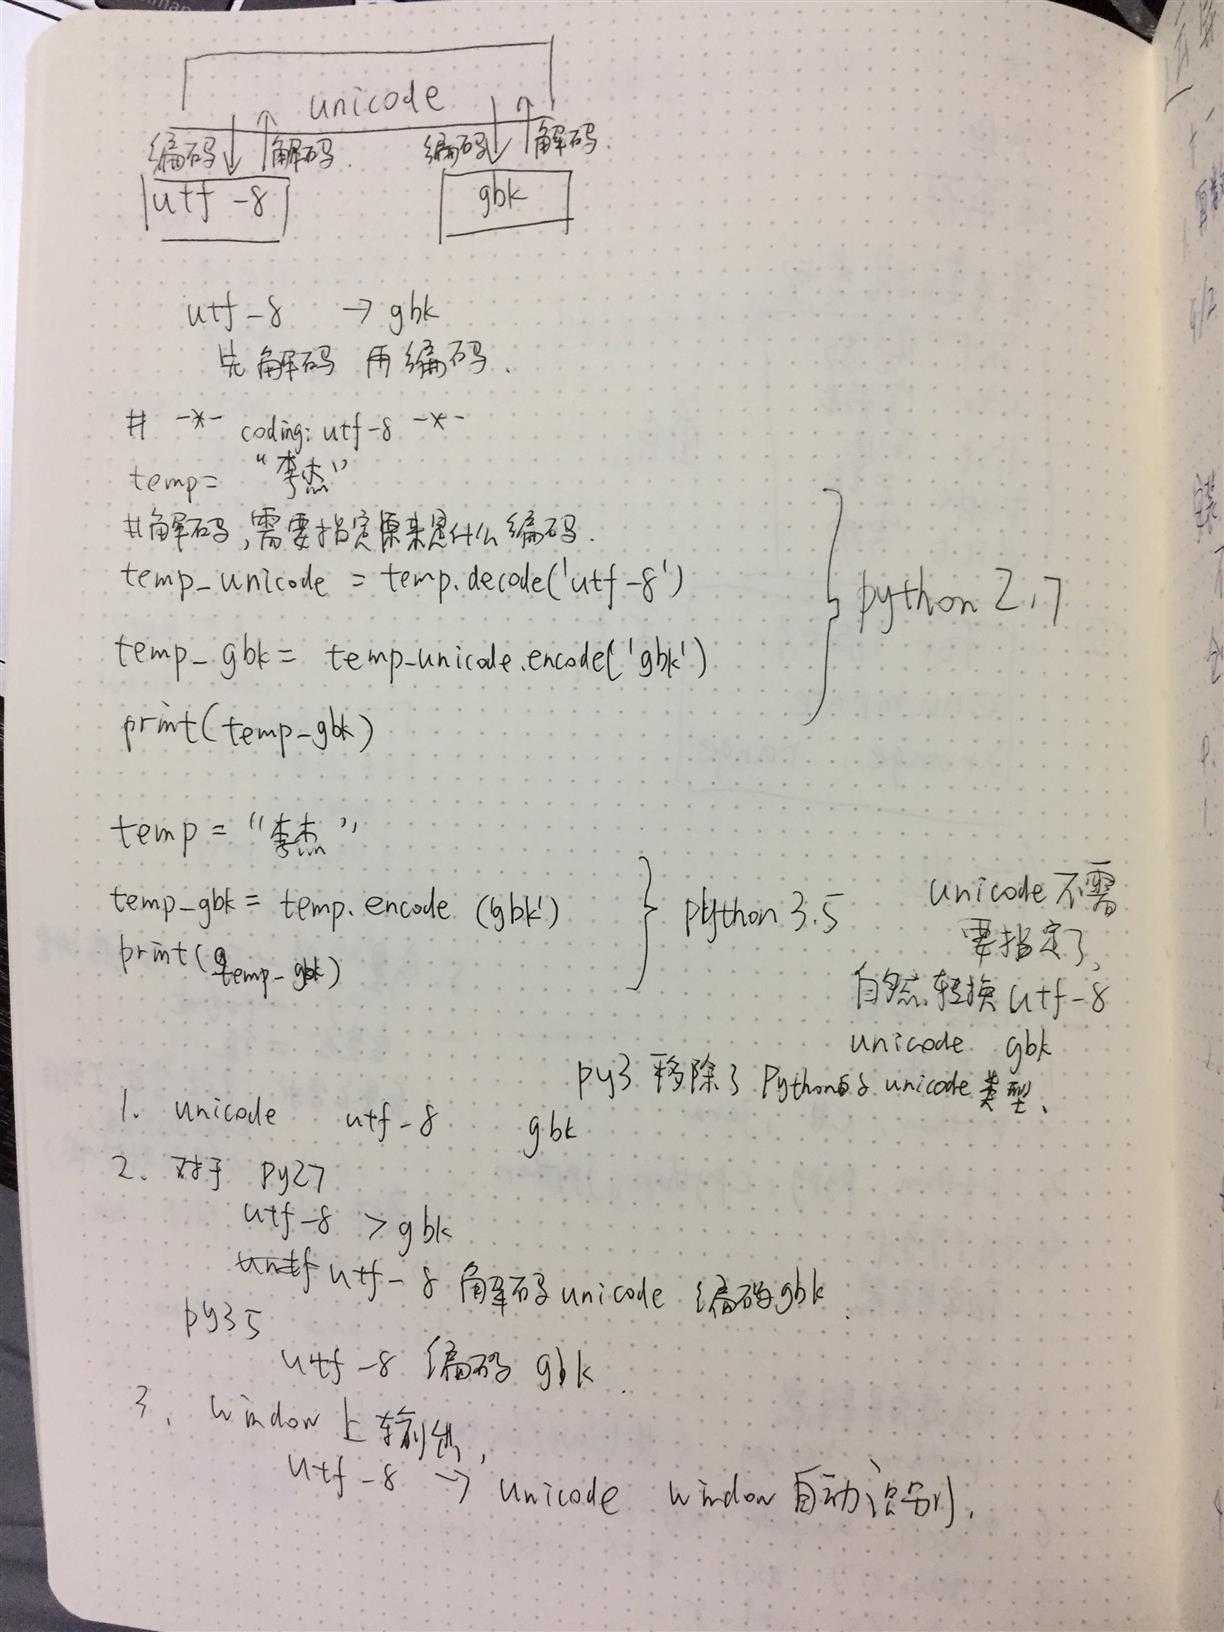 unicode
编码 解码. 编码 解码.
utf-8 gbk
utf-8 → gbk
先解码 再编码.
# -*- coding: utf-8 -*-
temp= "李杰"
#解码,需要指定原来是什么编码.
temp_unicode = temp.decode('utf-8')
temp_gbk = temp_unicode.encode('gbk')
print(temp_gbk)
python 2.7
temp = "李杰"
temp_gbk = temp.encode (gbk')
print(temp_gbk)
python 3.5
unicode 不需
要指定了,
自然转换 utf-8
unicode gbk
py3 移除了 Python的 unicode 类型、
1. unicode utf-8 gbk
2. 对于 py27
utf-8 > gbk
utf-8 解码 unicode 编码gbk.
py35
utf-8 编码 gbk.
3. window 上输出,
utf-8 → unicode window 自动识别.